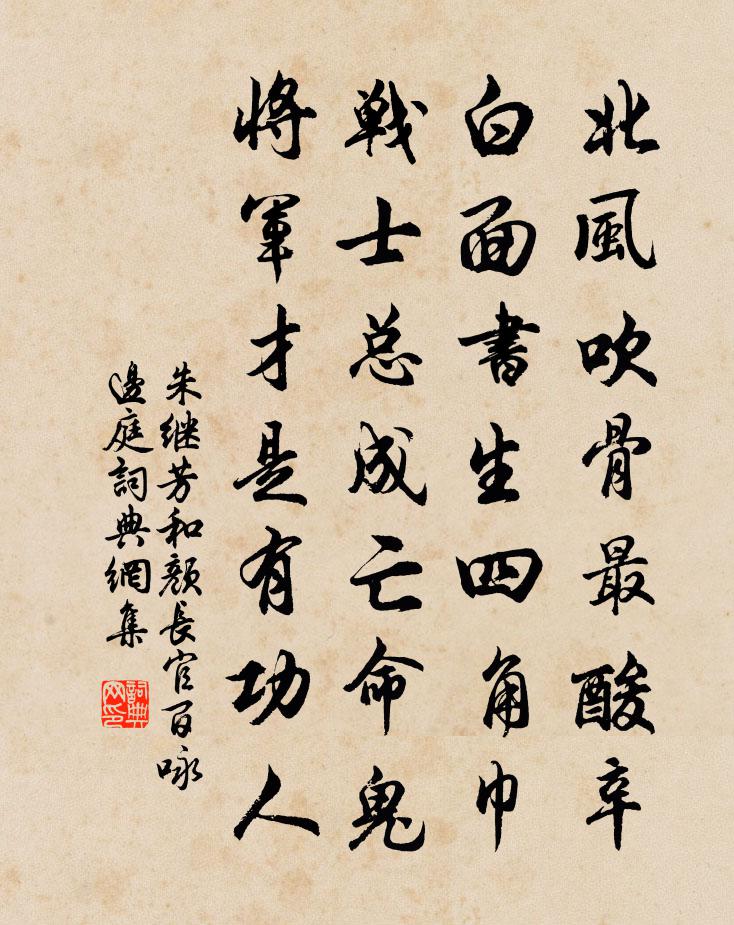 北風吹骨最酸辛
白面書生四角巾
戦士总成亡命鬼
將軍才是有功人
朱继芳和顏長官百咏
邊庭詞典網集
詞典网印